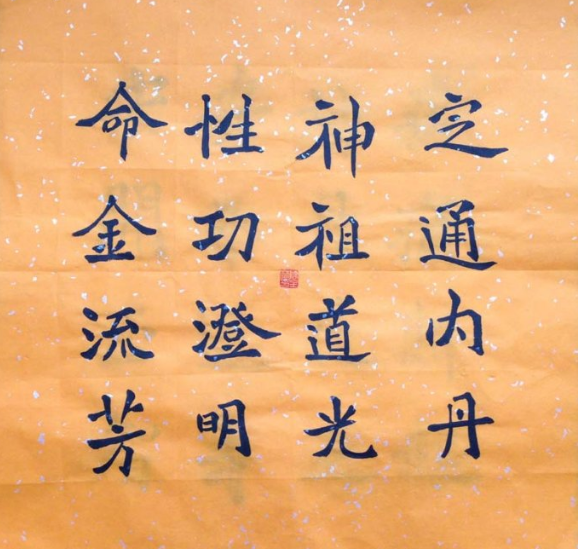 定通内丹
神祖道光
性功澄明
命金流芳